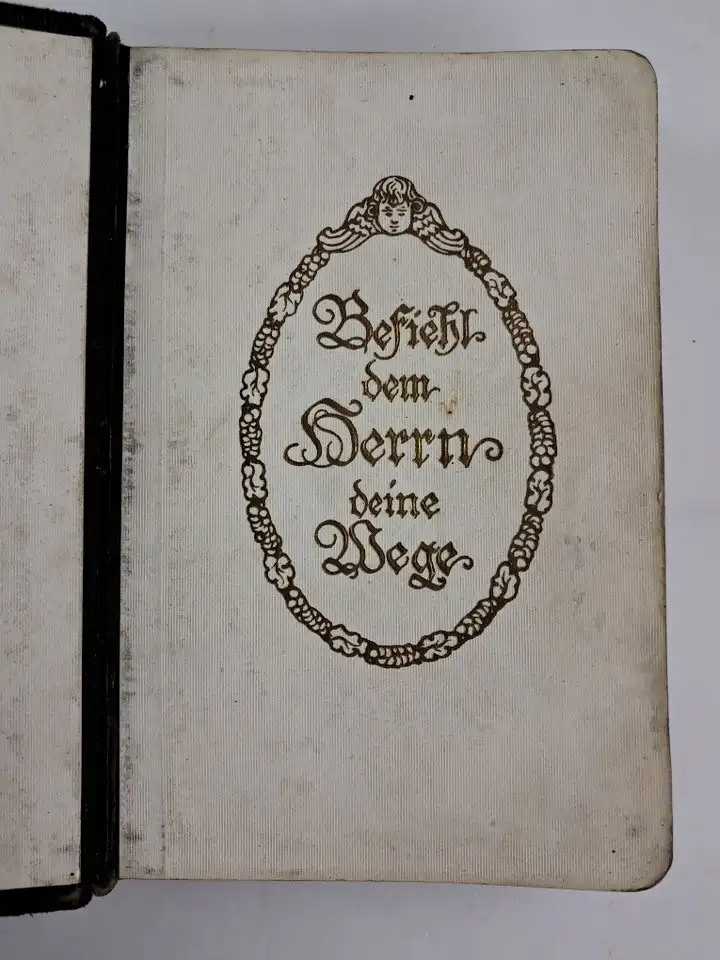 Befiehl
dem
Herrn
deine
Wege